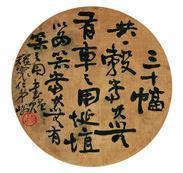 三十輻
共轂當其無
有車之用埏埴
以為器當其無有
器之用